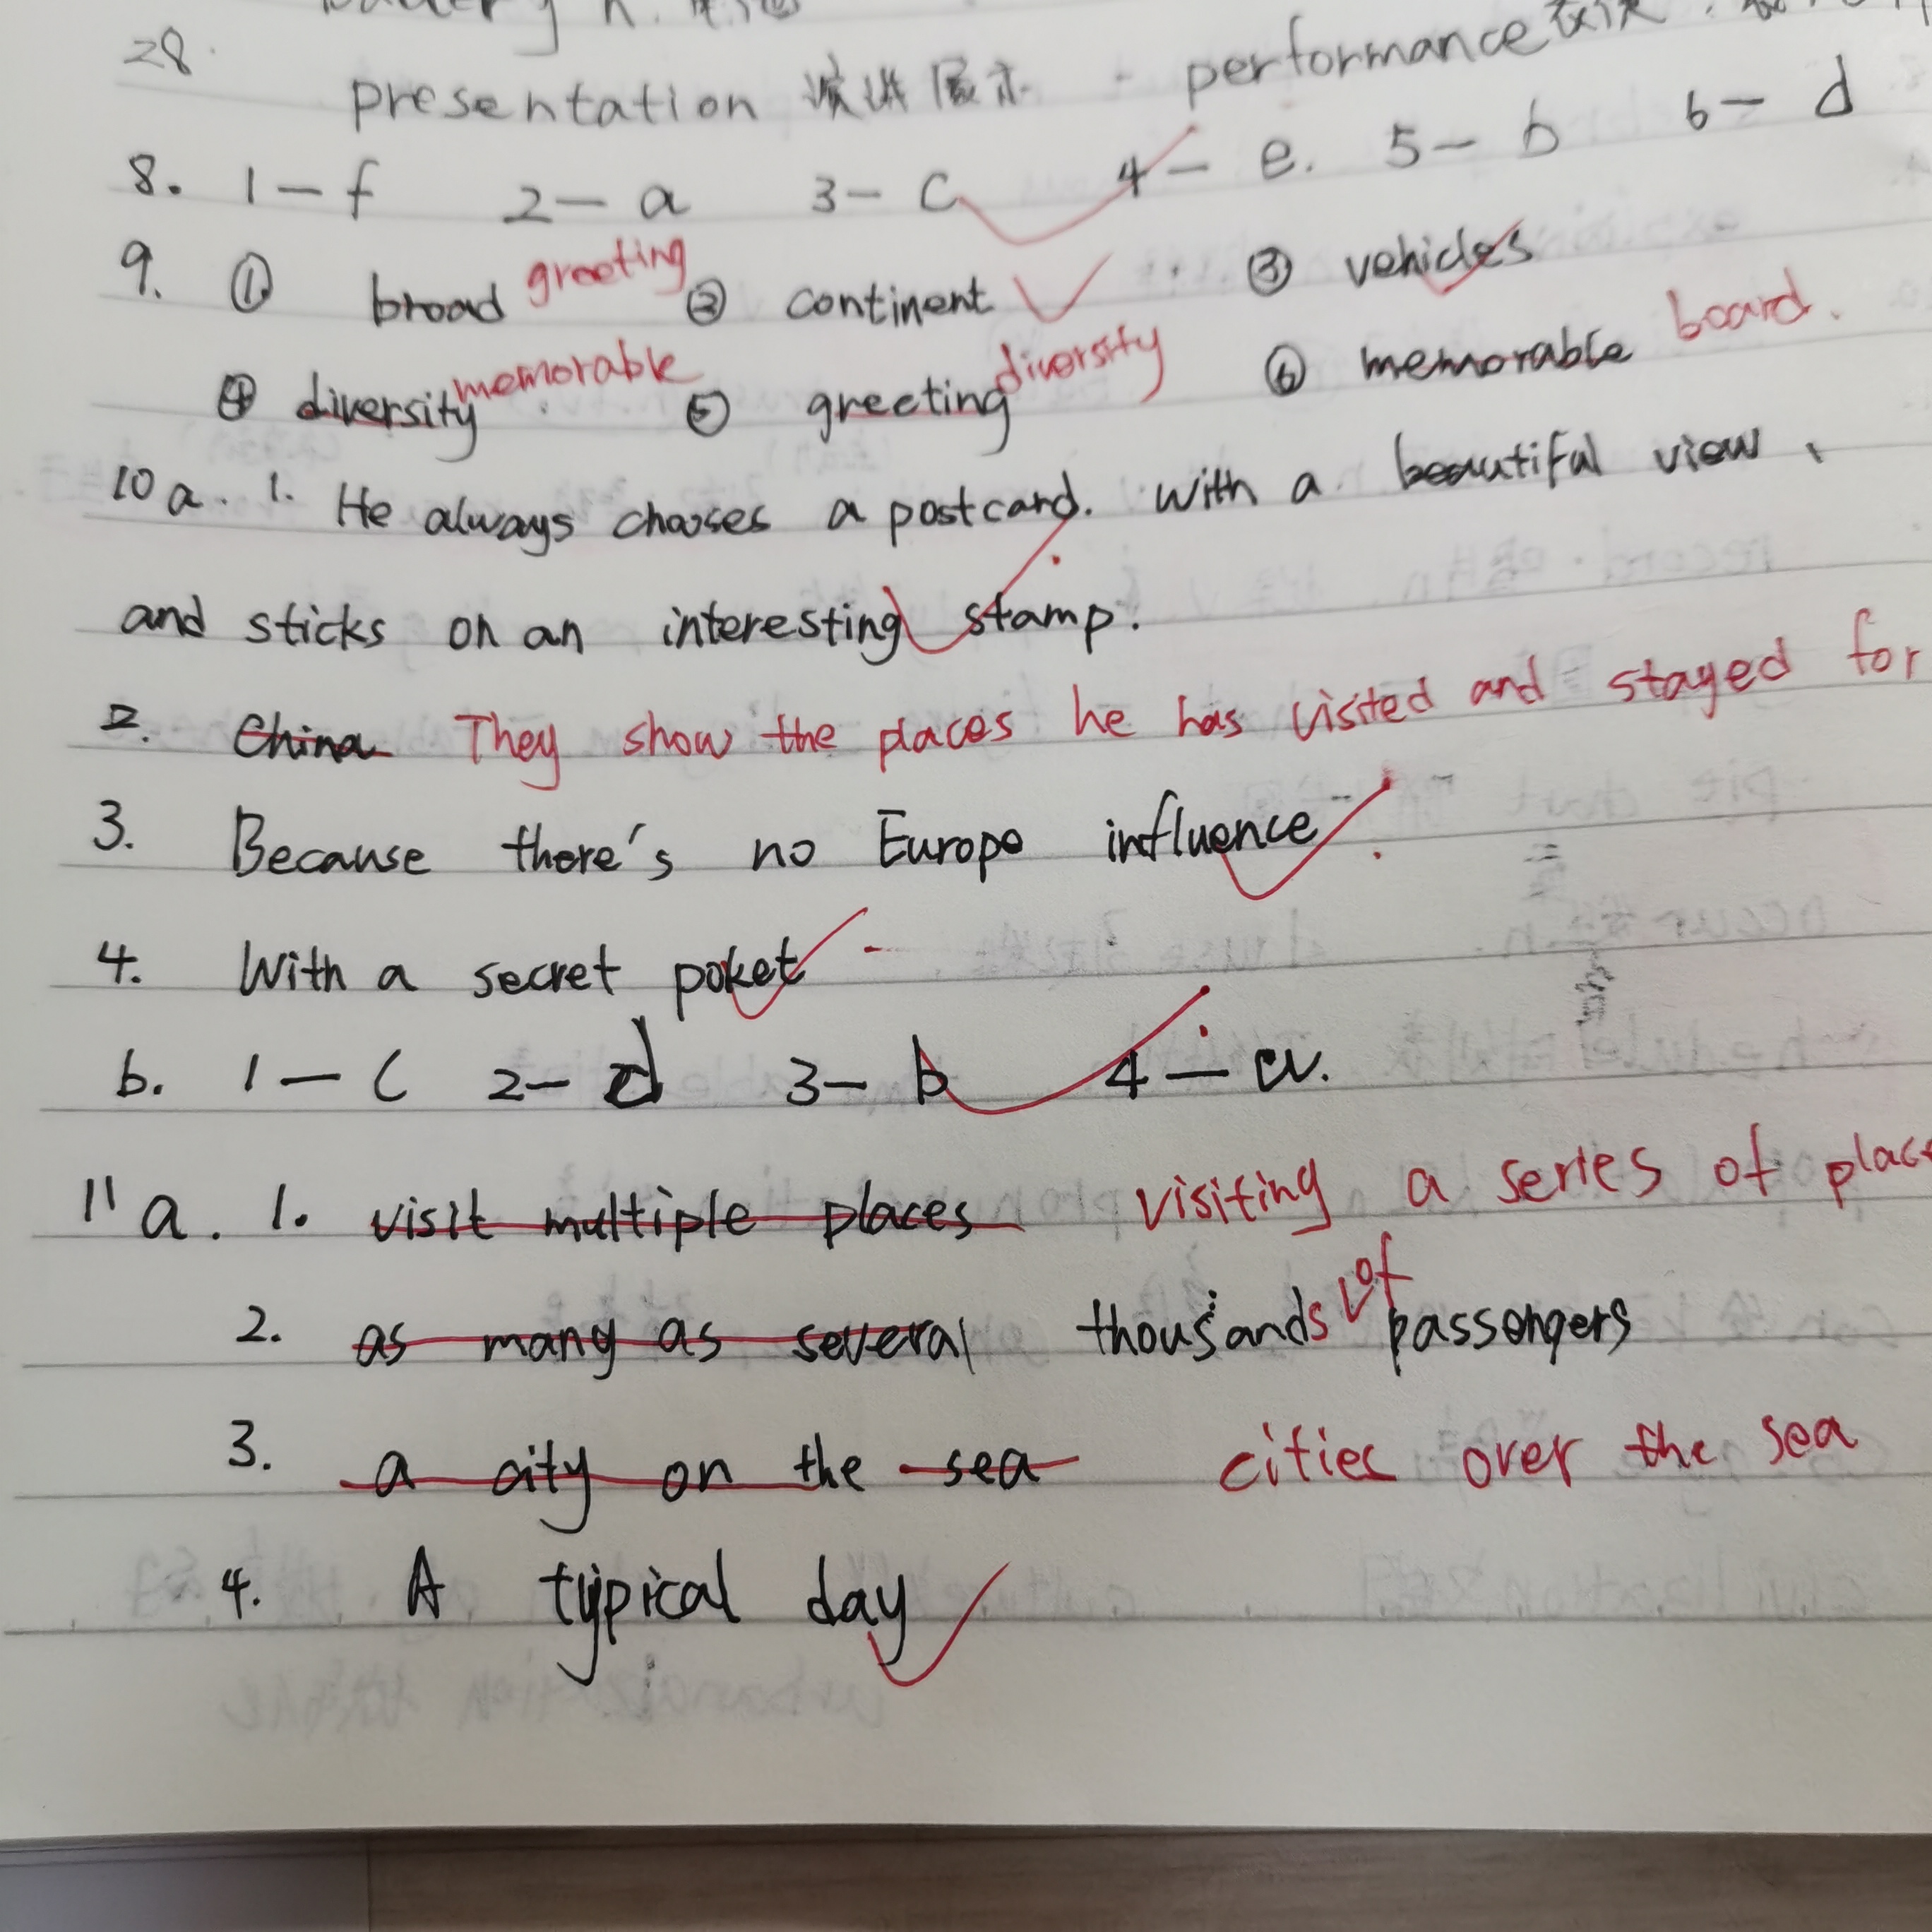 28.
presentation 演讲展示 - performance
8. 1—f 2—a 3—c 4—e. 5—b 6—d
9. ① broad greeting ② continent ③ vehicles
④ diversity memorable ⑤ greeting diversity ⑥ memorable board.
10 a. 1. He always chooses a postcard. with a beautiful view,
and sticks on an interesting stamp.
2. China They show the places he has visited and stayed for
3. Because there's no Europe influence
4. With a secret poket
b. 1—c 2—d 3—b 4—a.
11 a. 1. visit multiple places visiting a series of
2. as many as several thousands of passengers
3. a city on the sea cities over the sea
4. A typical day